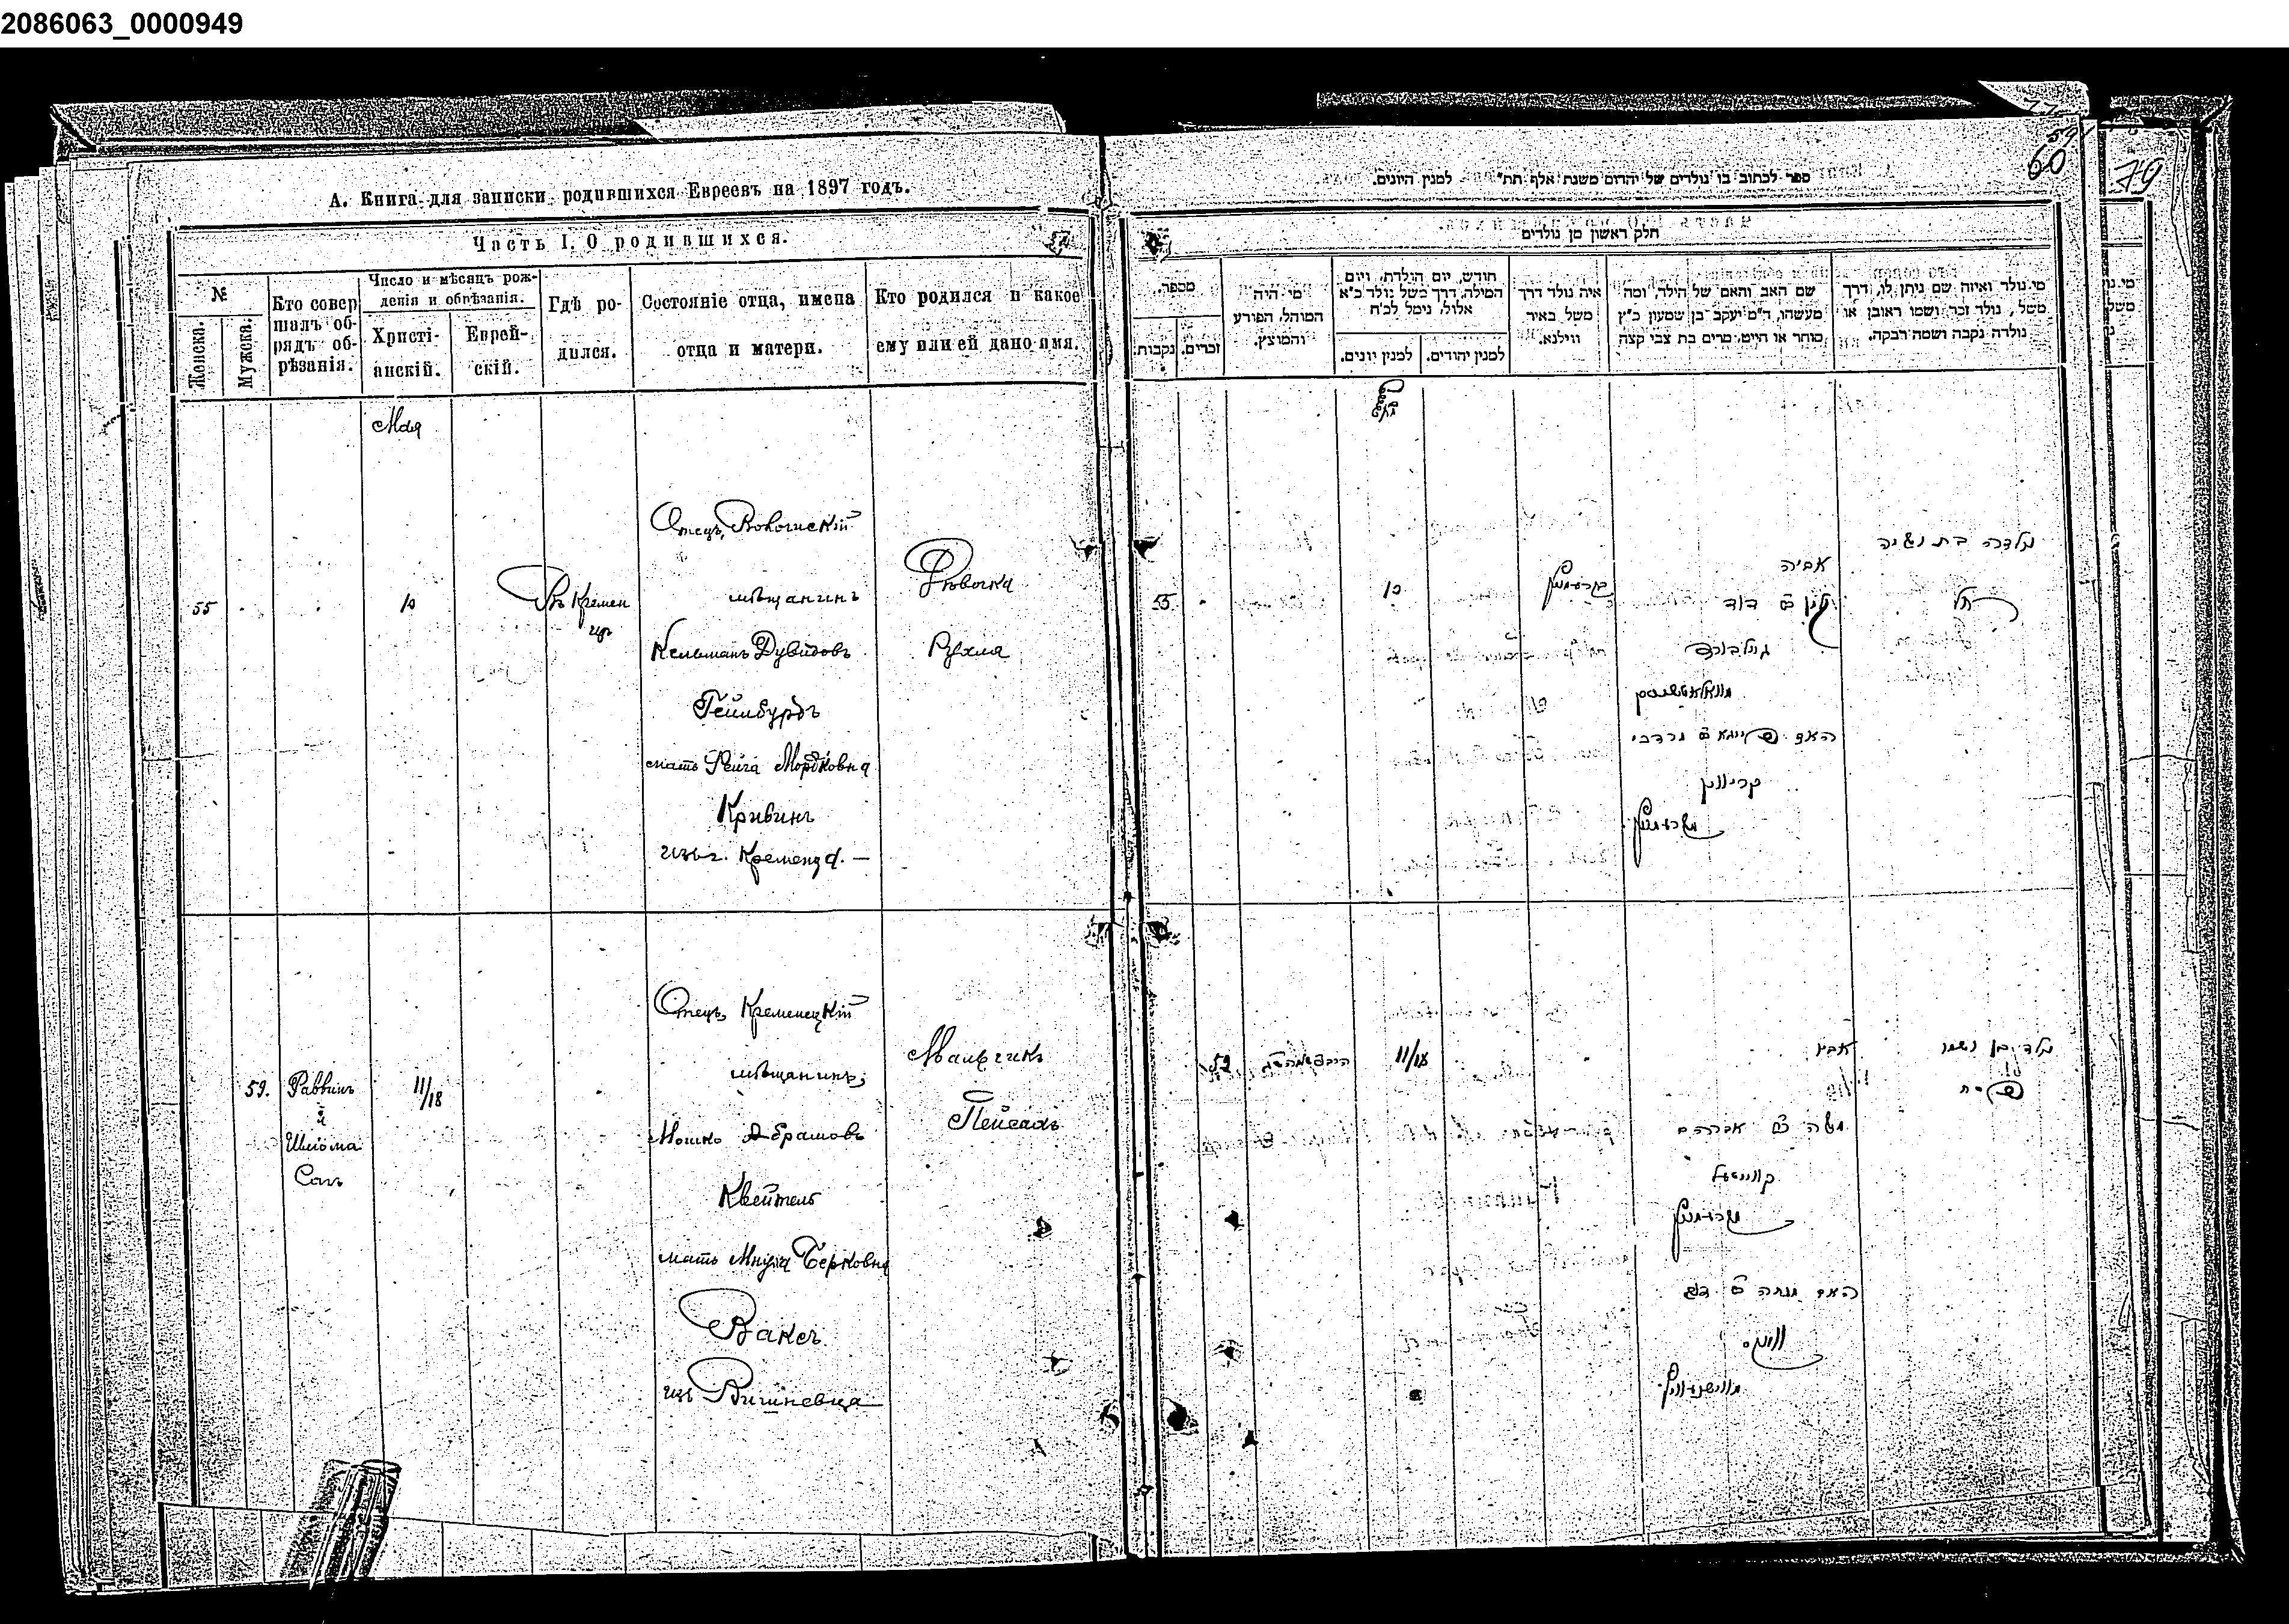 2086063_0000949
А. Книга для записки родившихся Евреевъ на 1897 годъ.
Часть I. О родившихся.
№
Женска.
Мужска.
Кто совер
шалъ об-
рядъ об-
рѣзанія.
Число и мѣсяцъ рож-
денія и обрѣзанія.
Христі-
анскій.
Еврей-
скій.
Гдѣ ро-
дился.
Состояніе отца, имена
отца и матери.
Кто родился и какое
ему или ей дано имя.
Мая
55
10
Въ Кремен
цѣ
Отецъ,
мѣщанинъ
Кельманъ Дувидовъ
Гейлбурдъ
мать Фейга Мордковна
Кривинъ
изъ г. Кременца. —
Дѣвочка
Рухля
59.
Раввинъ
и
Шлiома
11/18
Отецъ, Кременецкій
мѣщанинъ,
Мошко Абрамовъ
Квейтель
мать Берковна
Ваксъ
изъ Вишневца
Мальчикъ
Пейсахъ
ספר לכתוב בו נולדים של יהדים משנת אלף תת״ למנין היונים.
60
79
חלק ראשון מן נולדים
מספר.
נקבות.
זכרים.
מי היה
המוהל, הפורע
והמוצץ.
חודש, יום הולדת, ויום
המילה, דרך משל נולד כ״א
אלול, נימל לכ״ח
למנין יונים.
למנין יהודים.
איה נולד דרך
משל באיר
ווילנא.
שם האב והאם של הילד, ומה
מעשהו, ד״מ יעקב בן שמעון כ״ץ
סוחר או חייט, מרים בת צבי קצה
מי נולד ואיזה שם ניתן לו, דרך
משל, נולד זכר ושמו ראובן או
נולדה נקבה ושמה רבקה.
55
10
אביה
דוד
מרדכי
קריווין
נולדה בת ושמה
רחל
59
11/18
אביו
משה אברהם
קווייטעל
נולד בן ושמו
פסח